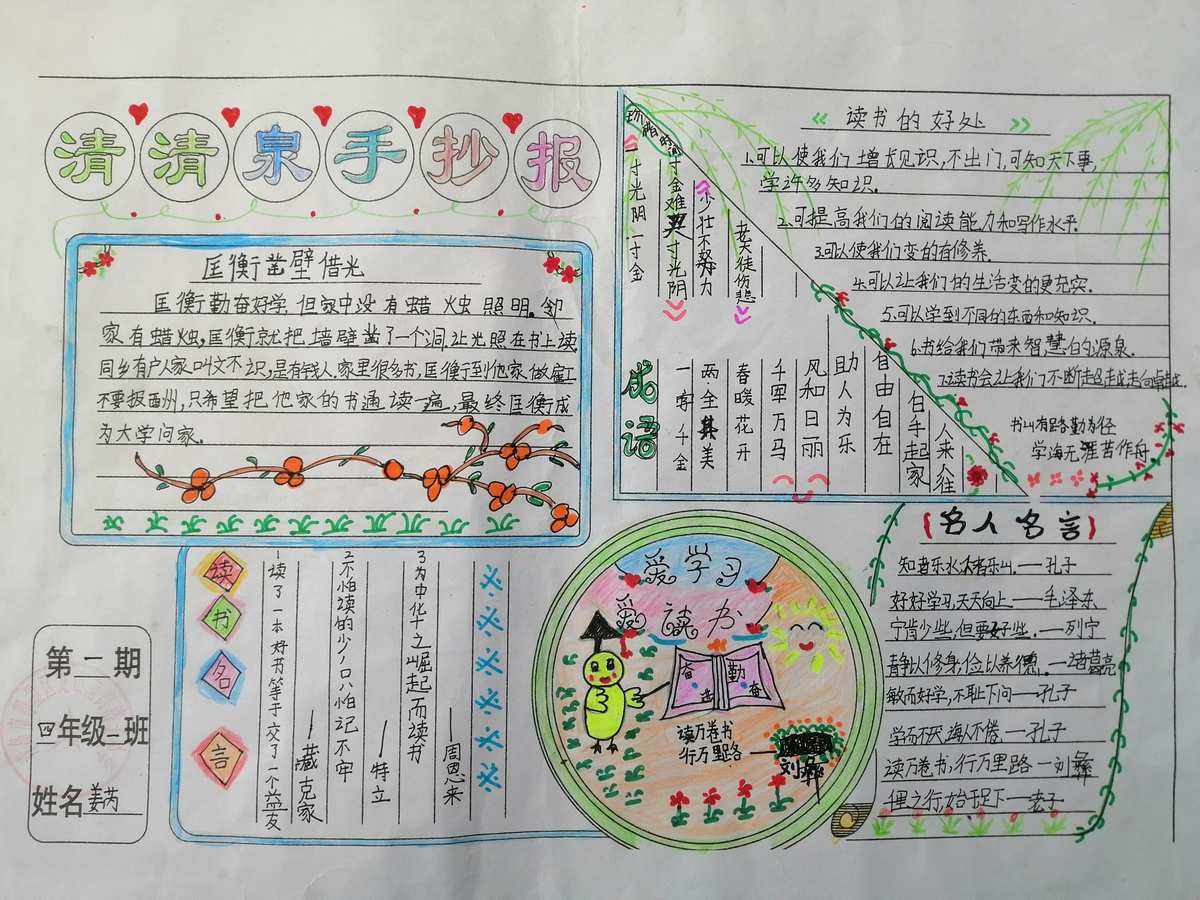 清清泉手抄报
匡衡凿壁借光
匡衡勤奋好学,但家中没有蜡烛照明。邻
家有蜡烛,匡衡就把墙壁凿了一个洞让光照在书上读
同乡有户人家叫文不识,是有钱人,家里很多书,匡衡到他家做雇
不要报西州,只希望把他家的书通读一遍,最终匡衡成
为大学问家.
第二期
四年级一班
姓名
读书名言
1读了一本好书等于交了一个益友
——臧克家
2不怕读的少,只怕记不牢
——特立
3为中华之崛起而读书
——周恩来
一寸光阴一寸金
寸金难买寸光阴
少壮不努力
老大徒伤悲
成语
一字千金
两全其美
春暖花开
千军万马
风和日丽
助人为乐
自由自在
白手起家
人来人往
《读书的好处》
1.可以使我们增长见识,不出门,可知天下事,
学许多知识.
2.可提高我们的阅读能力和写作水平.
3.可以使我们变的有修养.
4.可以让我们的生活变的更充实.
5.可以学到不同的东西和知识.
6.书给我们带来智慧的源泉.
7.读书会让我们不断超越走向卓越.
书山有路勤为径
学海无涯苦作舟
爱学习
爱读书
奋
勤
奋
读万卷书
行万里路——
刘彝
【名人名言】
知者乐水,仁者乐山.——孔子
好好学习,天天向上——毛泽东
宁肯少些,但要好些.——列宁
静以修身,俭以养德.——诸葛亮
敏而好学,不耻下问——孔子
学而不厌,诲人不倦.——孔子
读万卷书,行万里路—刘彝
千里之行,始于足下——老子